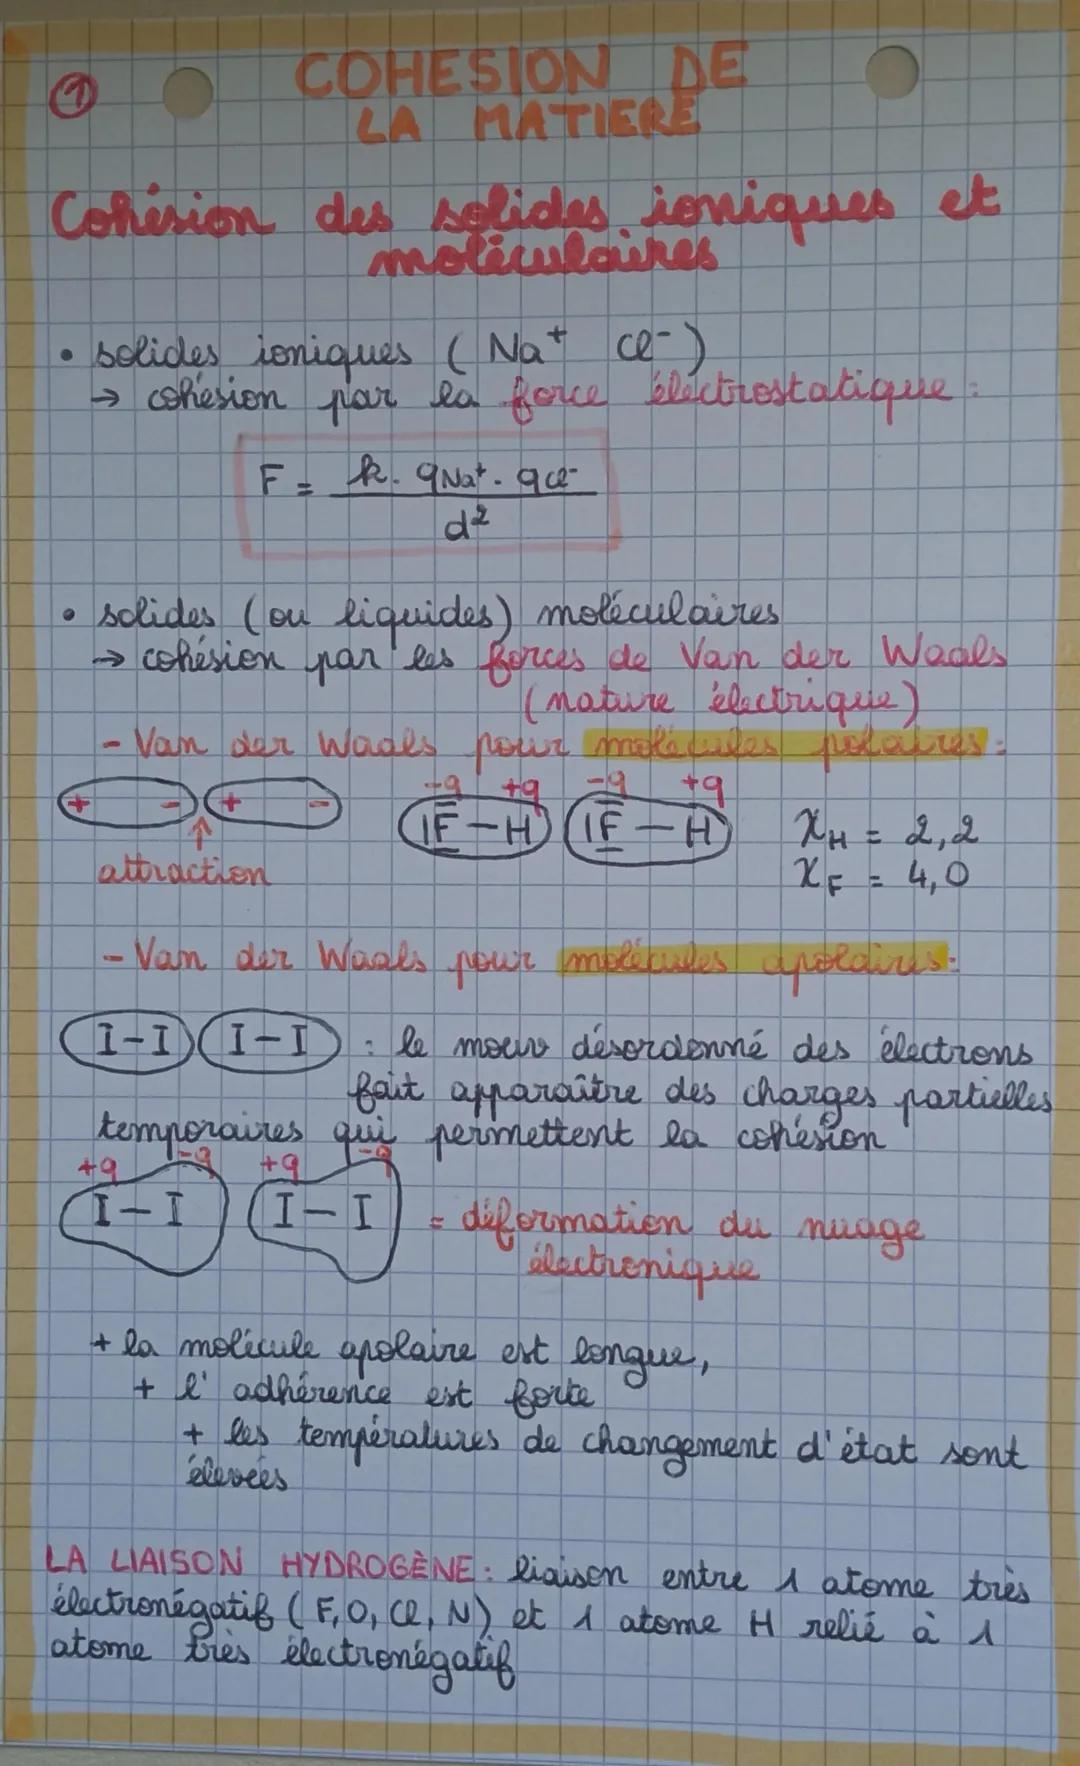 ①
COHESION DE
LA MATIERE
Cohésion des solides ioniques et
moléculaires
• solides ioniques ( Na⁺ Cl⁻ )
→ cohésion par la force électrostatique :
F = k. qNa⁺. qCl⁻
d²
• solides (ou liquides) moléculaires
→ cohésion par les forces de Van der Waals
(nature électrique)
- Van der Waals pour molécules polaires :
+ - + - -q +q -q +q
|F - H |F - H χH = 2,2
attraction χF = 4,0
- Van der Waals pour molécules apolaires :
I-I I-I : le mouv désordonné des électrons
fait apparaître des charges partielles
temporaires qui permettent la cohésion
+q -q +q -q
I-I I-I = déformation du nuage
électronique
+ la molécule apolaire est longue,
+ l'adhérence est forte
+ les températures de changement d'état sont
élevées
LA LIAISON HYDROGÈNE : liaison entre 1 atome très
électronégatif ( F, O, Cl, N ) et 1 atome H relié à 1
atome très électronégatif